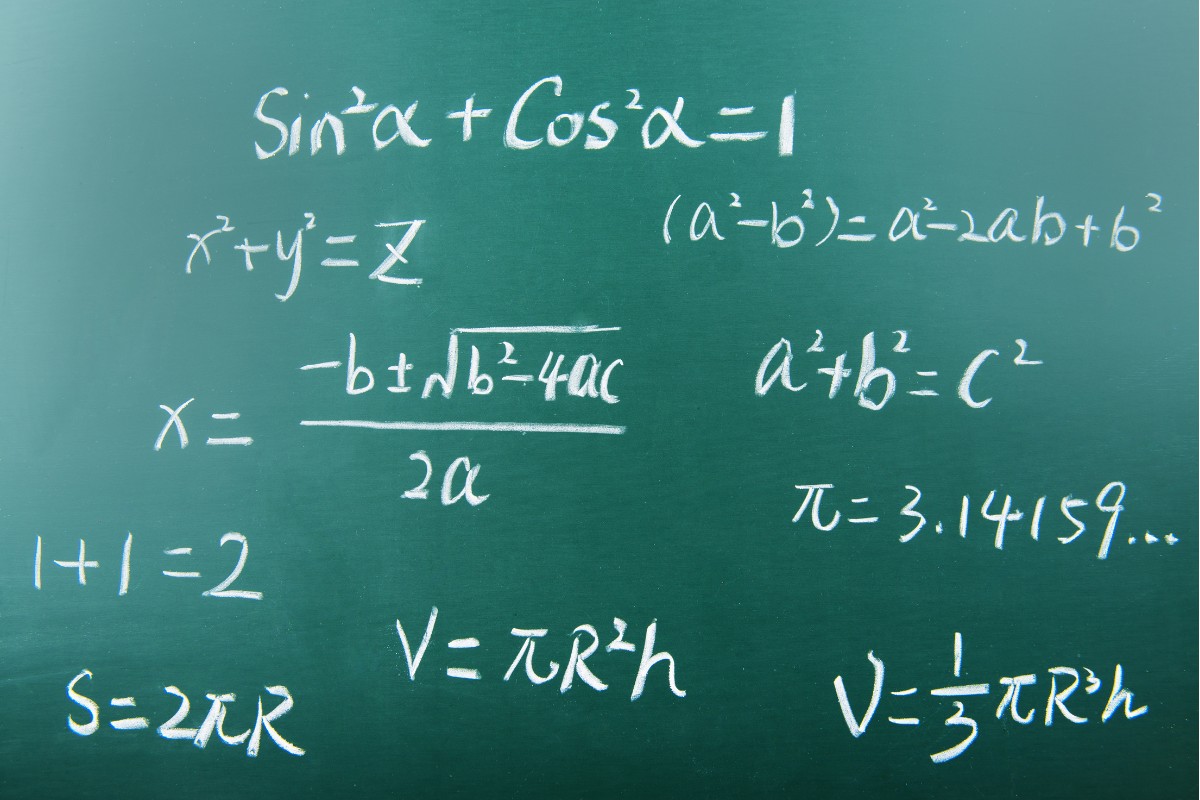 Sin²α + Cos²α = 1
x² + y² = Z
(a² - b²) = a² - 2ab + b²
x = \frac{-b ± \sqrt{b² - 4ac}}{2a}
a² + b² = c²
π = 3.14159...
1 + 1 = 2
V = πR²h
S = 2πR
V = \frac{1}{3}πR³h